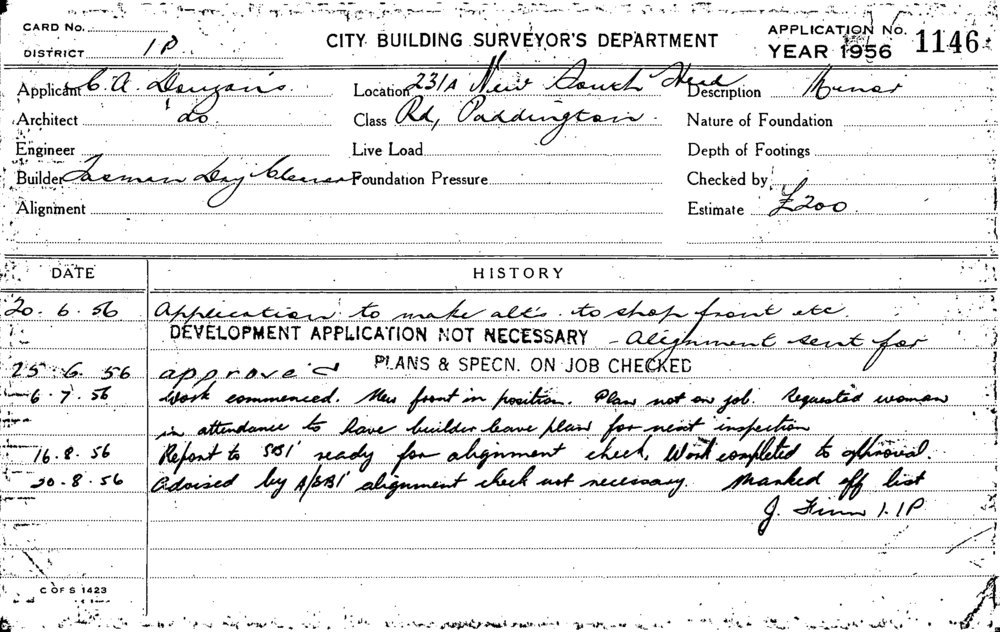 CARD No.
DISTRICT 1P
CITY BUILDING SURVEYOR'S DEPARTMENT
APPLICATION No. 1146
YEAR 1956
Applicant C. A.
Location 231A New South Head
Description Minor
Architect do
Class Rd, Paddington.
Nature of Foundation
Engineer
Live Load
Depth of Footings
Builder Tasman
Foundation Pressure
Checked by
Alignment
Estimate £200
DATE
HISTORY
20. 6. 56 Application to make alts. to shop front etc
DEVELOPMENT APPLICATION NOT NECESSARY - Alignment sent for
25. 6. 56 approved PLANS & SPECN. ON JOB CHECKED
6. 7. 56 Work commenced. New front in position. Plan not on job. Requested woman
in attendance to have builder leave plan for next inspection
16. 8. 56 Report to SBI ready for alignment check. Work completed to approval.
20. 8. 56 Advised by A/SBI alignment check not necessary. Marked off list
J. Finn 1. 1P
C OF S 1423